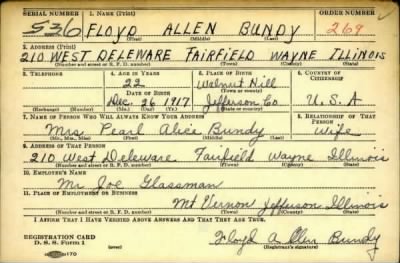 SERIAL NUMBER 1. NAME (Print) ORDER NUMBER
536 FLOYD ALLEN BUNDY 269
(First) (Middle) (Last)
2. ADDRESS (Print)
210 WEST DELEWARE FAIRFIELD WAYNE ILLINOIS
(Number and street or R. F. D. number) (Town) (County) (State)
3. TELEPHONE 4. AGE IN YEARS 5. PLACE OF BIRTH 6. COUNTRY OF CITIZENSHIP
22 Walnut Hill
DATE OF BIRTH (Town or county)
Dec. 26 1917 Jefferson Co. U.S.A
(Exchange) (Number) (Mo.) (Day) (Yr.) (State or country)
7. NAME OF PERSON WHO WILL ALWAYS KNOW YOUR ADDRESS 8. RELATIONSHIP OF THAT PERSON
Mrs. Pearl Alice Bundy Wife
(Mr., Mrs., Miss) (First) (Middle) (Last)
9. ADDRESS OF THAT PERSON
210 West Deleware Fairfield Wayne Illinois
(Number and street or R. F. D. number) (Town) (County) (State)
10. EMPLOYER'S NAME
Mr. Joe Glassman
11. PLACE OF EMPLOYMENT OR BUSINESS
Mt Vernon Jefferson Illinois
(Number and street or R. F. D. number) (Town) (County) (State)
I AFFIRM THAT I HAVE VERIFIED ABOVE ANSWERS AND THAT THEY ARE TRUE.
REGISTRATION CARD
D. S. S. Form 1 Floyd Allen Bundy
(Registrant's signature)